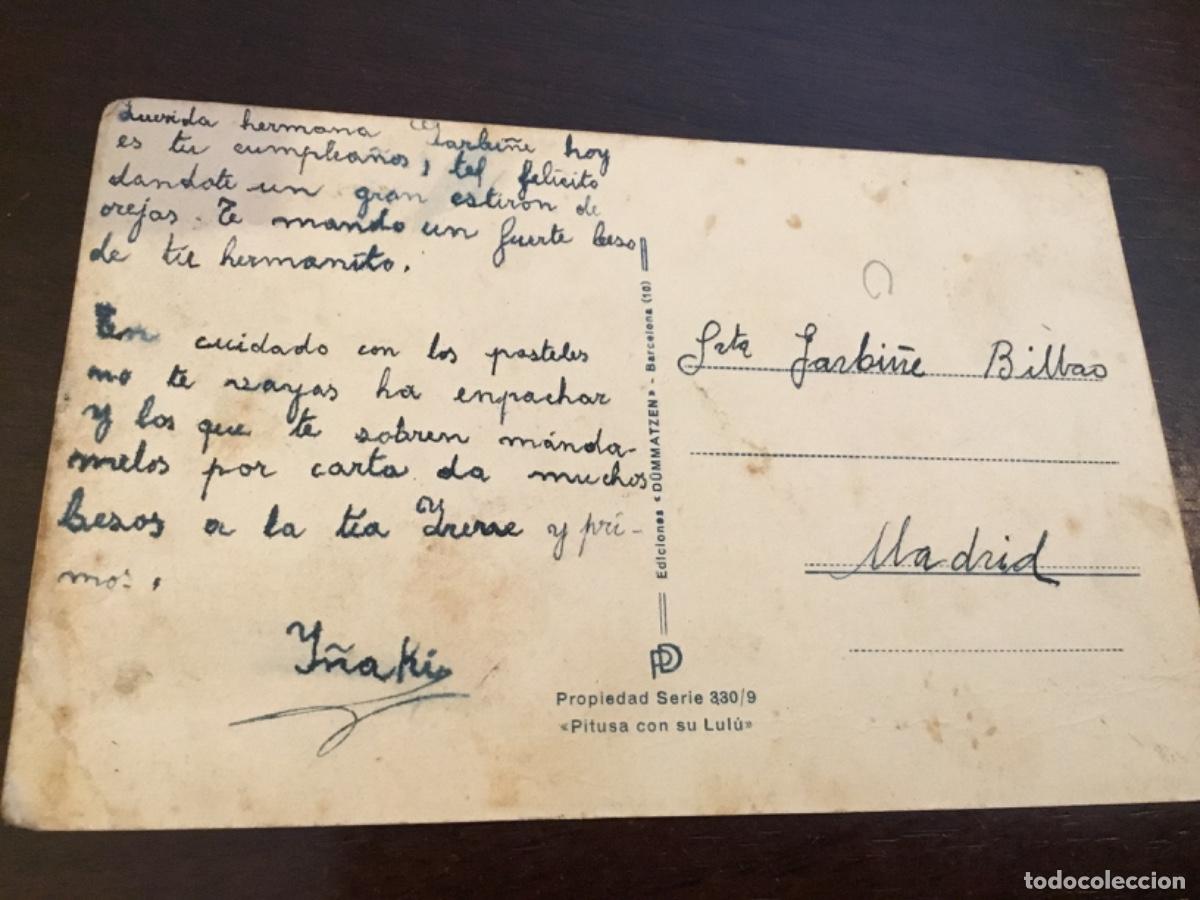 Querida hermana Garbiñe hoy
es tu cumpleaños, tel felicito
dandote un gran estiron de
orejas. Te mando un fuerte beso
de tu hermanito.
Ten cuidado con los pasteles
no te vayas ha enpachar
y los que te sobren mánda-
melos por carta da muchos
besos a la tía Yrene y pri-
mos.
Yñaki
Ediciones «DÜMMATZEN» - Barcelona (10)
PD
Propiedad Serie 330/9
«Pitusa con su Lulú»
Srta Garbiñe Bilbao
Madrid
todocoleccion